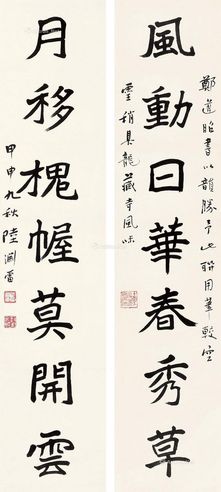 鄭道昭書以韻勝予此聯用筆較空
靈稍具龍藏寺風味
風動日華春秀草
月移槐幄莫開雲
甲申九秋陸淵雷